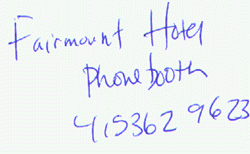 Fairmount Hotel
phone booth
415362 9623